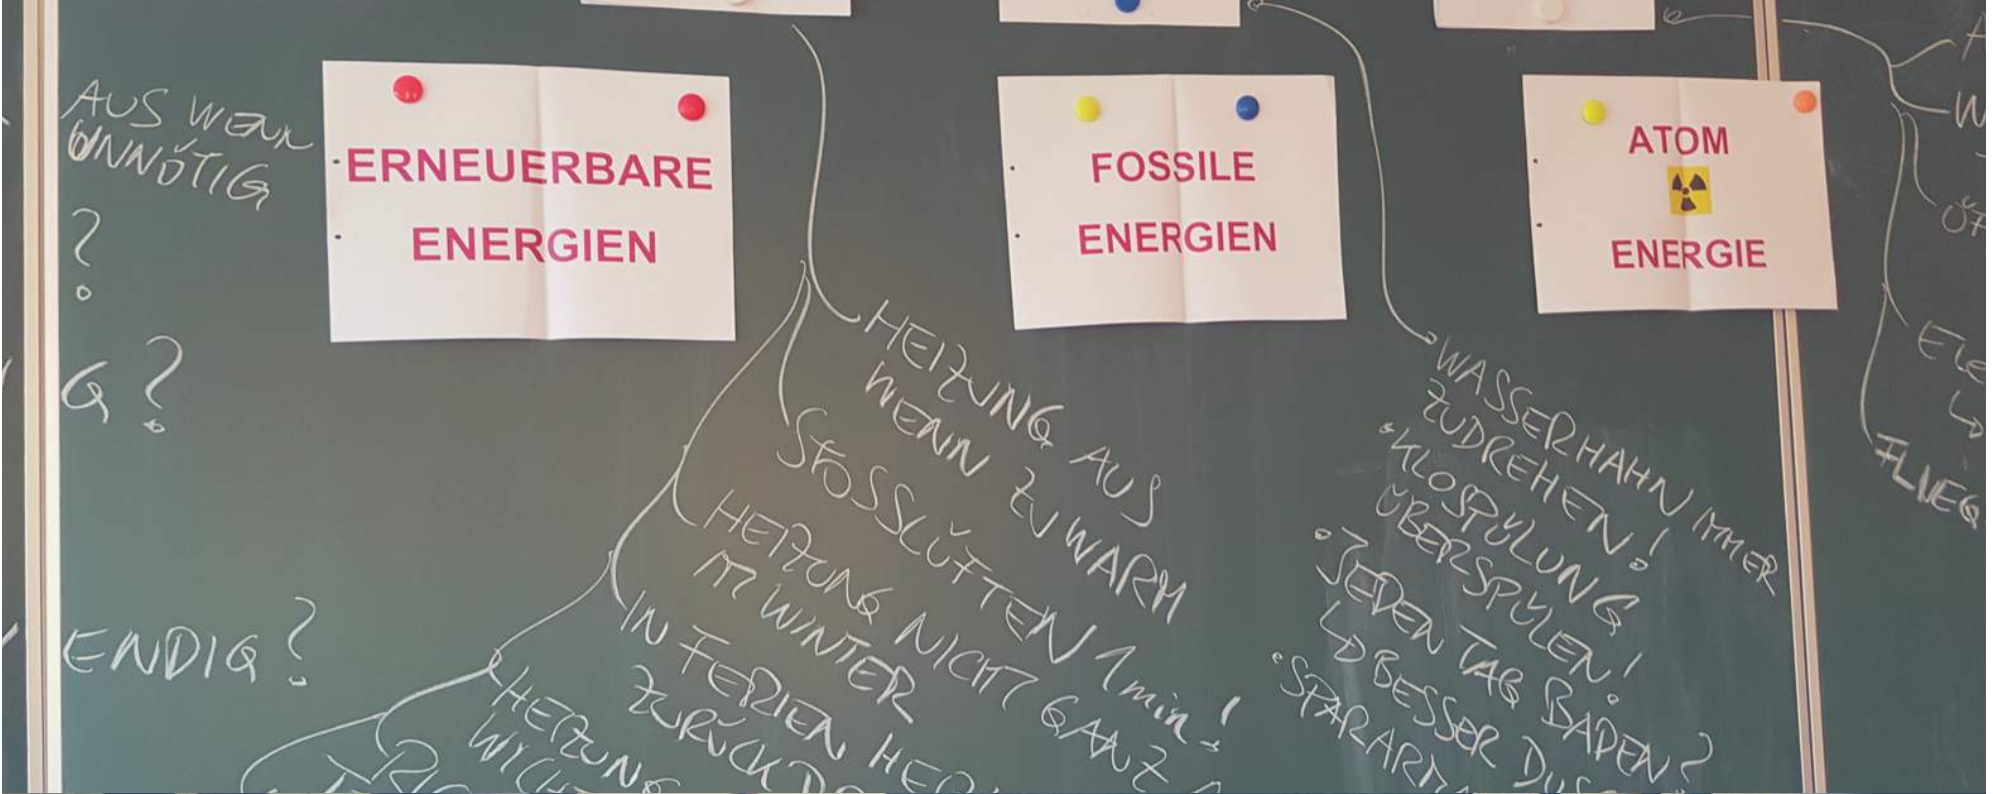 AUS WENN
UNNÖTIG
?
G?
ENDIG?
ERNEUERBARE
ENERGIEN
FOSSILE
ENERGIEN
ATOM
ENERGIE
HEIZUNG AUS
WENN ZU WARM
STOSSLÜFTEN 1 min!
HEIZUNG NICHT GANZ
IM WINTER
IN FERIEN
ZURÜCK
HEIZUNG
WASSERHAHN IMMER
ZUDREHEN!
• KLOSPÜLUNG
ÜBERSPÜLEN!
• JEDEN TAG BADEN?
↳ BESSER
• SPARARM